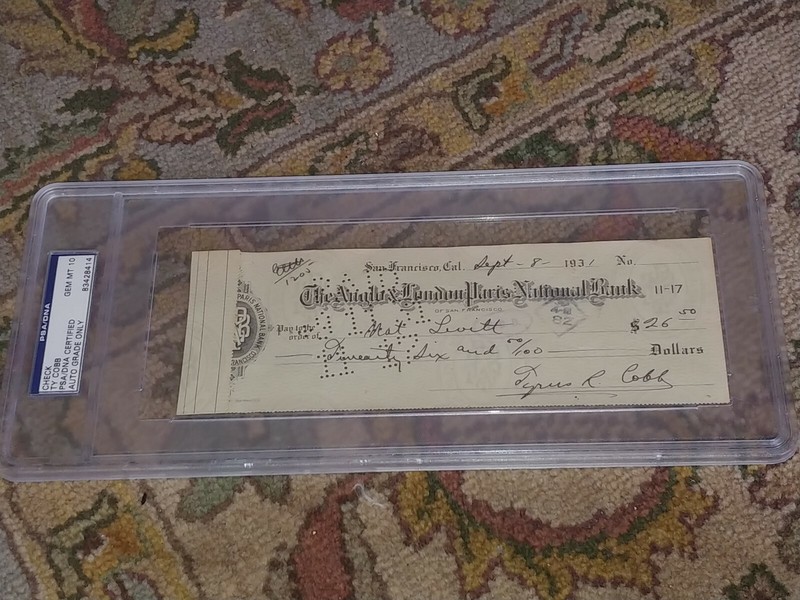 PSA/DNA
CHECK
TY COBB
PSA/DNA CERTIFIED
AUTO GRADE ONLY
GEM MT 10
83428414
San Francisco, Cal. Sept - 8 - 1931 No.
The Anglo & London Paris National Bank 11-17
OF SAN FRANCISCO
Pay to the
order of Nat Levitt $ 26 50
Six and 50/100 Dollars
Tyrus R Cobb
PARIS NATIONAL BANK